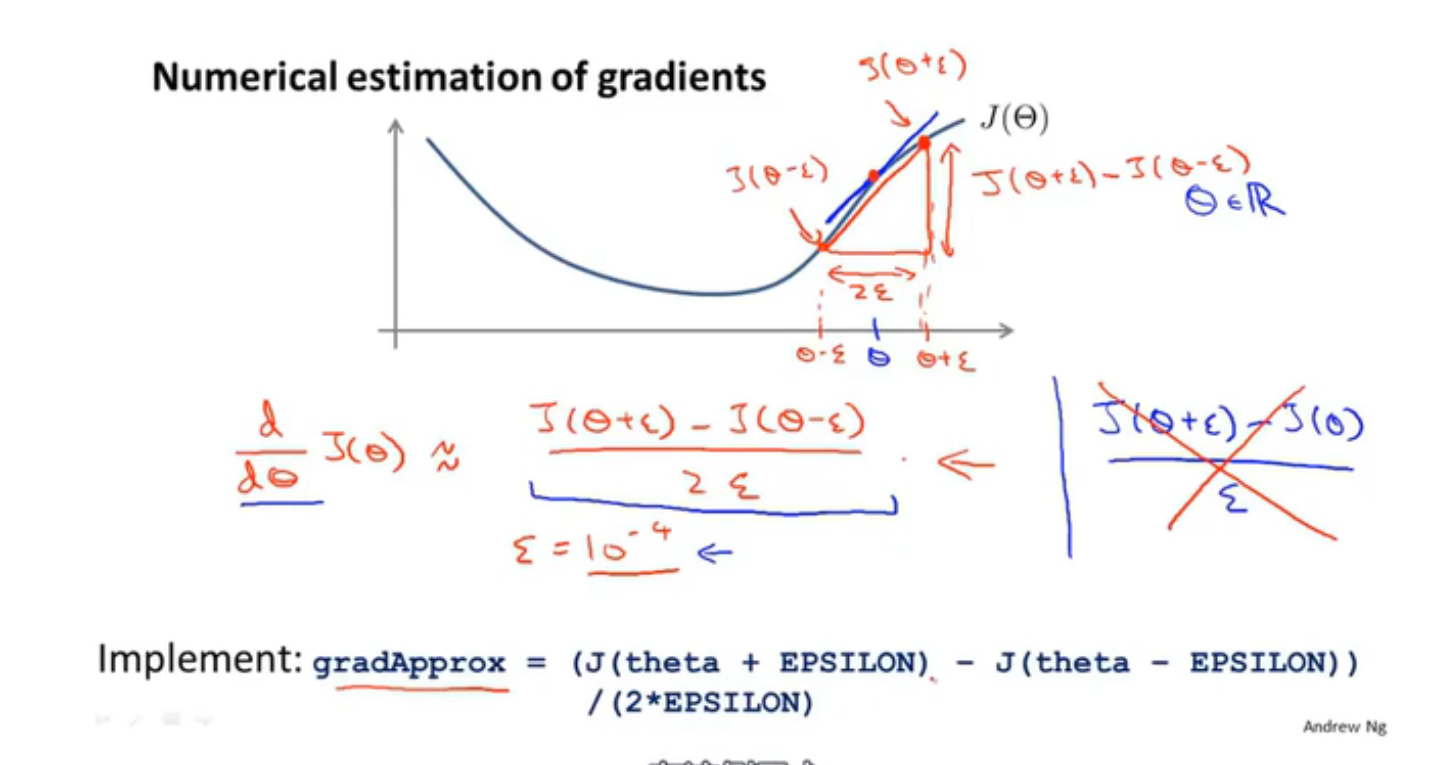 Numerical estimation of gradients
J(θ+ε)
J(Θ)
J(θ-ε)
J(θ+ε)-J(θ-ε)
θ∈ℝ
2ε
θ-ε θ θ+ε
d/dθ J(θ) ≈ J(θ+ε) - J(θ-ε) / 2ε . ← | J(θ+ε)-J(θ) / ε
ε = 10^-4 ←
Implement: gradApprox = (J(theta + EPSILON) - J(theta - EPSILON))
/(2*EPSILON)
Andrew Ng